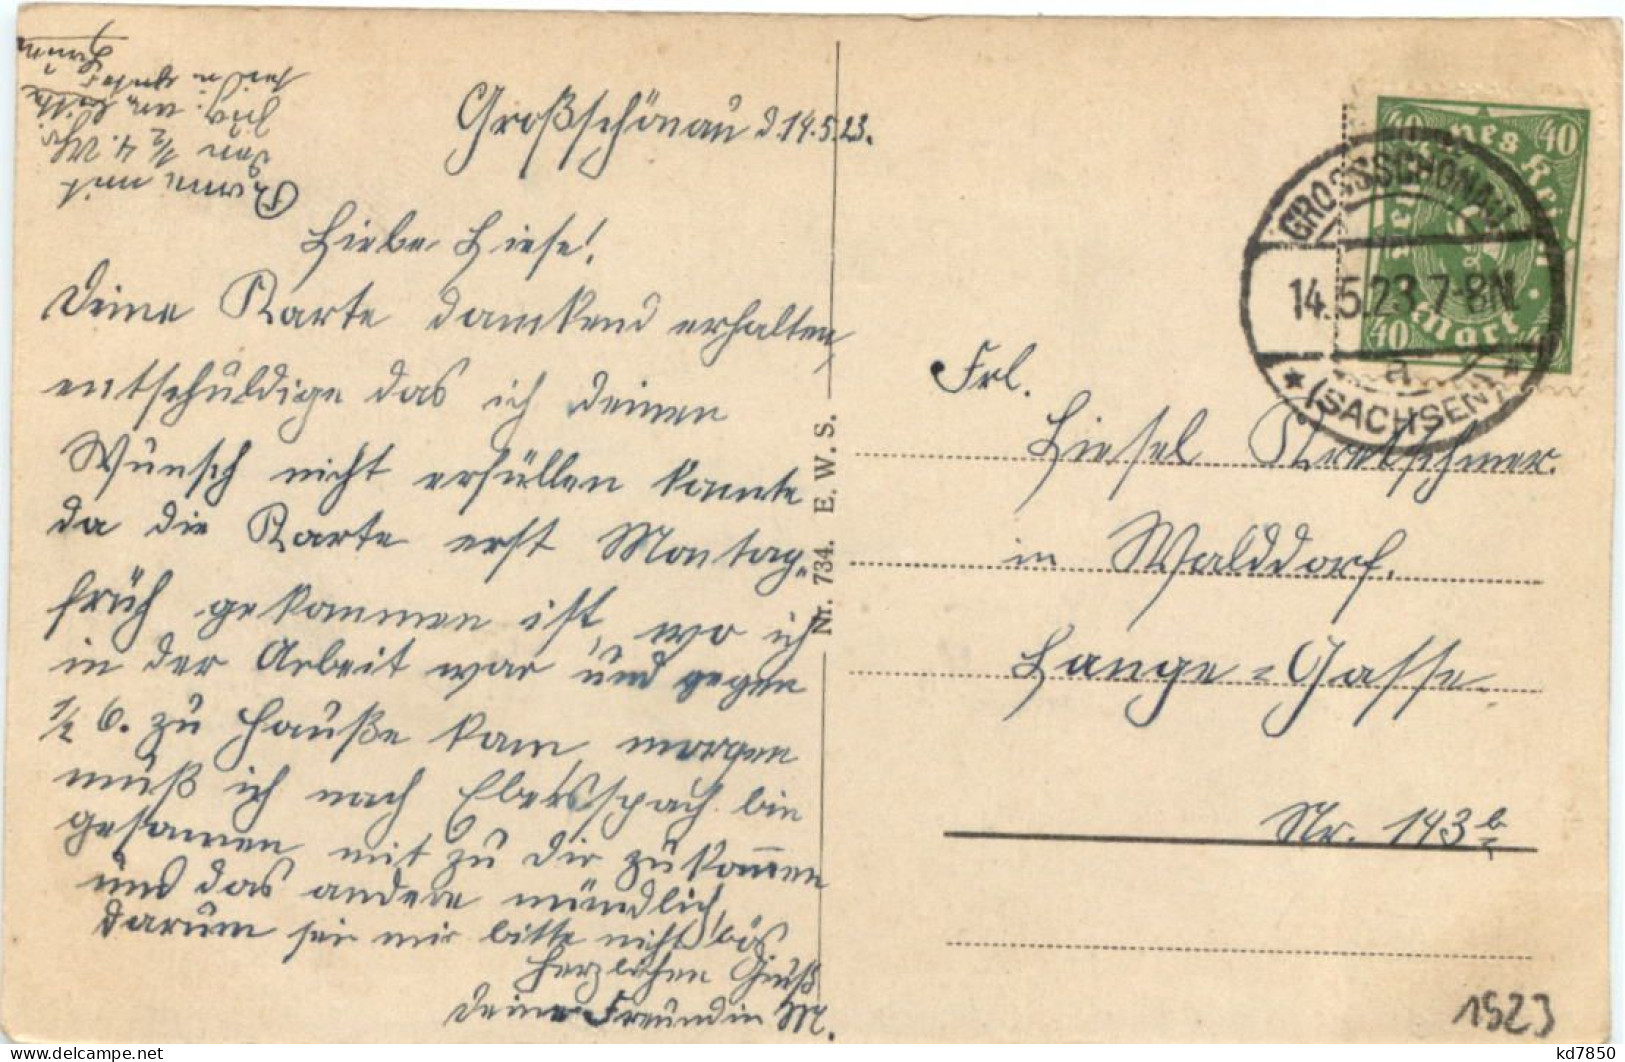 Großschönau d. 14.5.23.
Liebe Liese!
Deine Karte dankend erhalten,
entschuldige das ich deinen
Wunsch nicht erfüllen konnte
da die Karte erst Montag
früh gekommen ist, wo ich
in der Arbeit war und gegen
1/2 6. zu Hauße kam, morgen
muß ich nach Ebersspach bin
gesonnen mit zu dir zu kommen
und das andere mündlich,
darum sei mir bitte nicht bös
Herzlichen Gruß
Deine Freundin M.
Komme mit
den 1/2 4. Uhr
Zug; um bitte
sei u
Frl.
Liesel Kretschmer.
in Walddorf.
Lange-Gasse.
Nr. 143 b
Nr. 734. E. W. S.
40 40
Deutsches Reich
40 Mark
GROSSSCHÖNAU
14.5.23.7-8N.
* a *
(SACHSEN)
1523
delcampe.net
kd7850